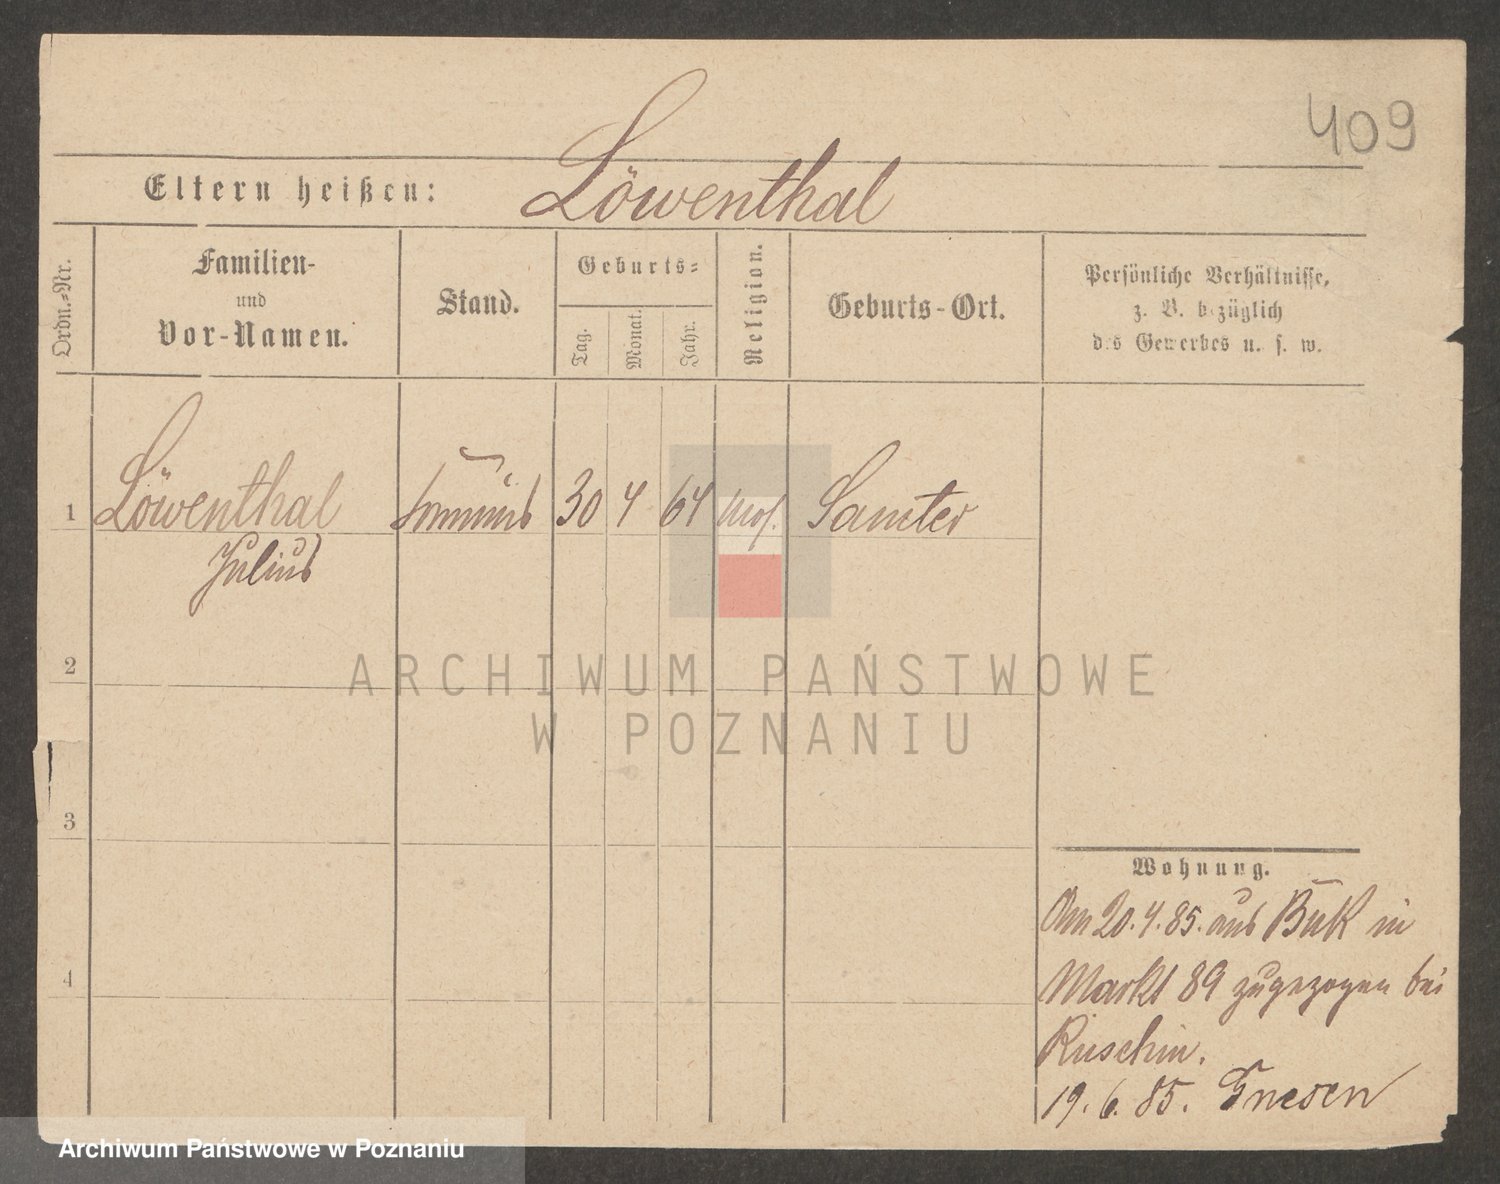 409
Eltern heißen: Löwenthal
Ordn.=Nr.
Familien-
und
Vor-Namen.
Stand.
Geburts=
Tag.
Monat.
Jahr.
Religion.
Geburts-Ort.
Persönliche Verhältnisse,
z. B. bezüglich
des Gewerbes u. s. w.
1 Löwenthal 30 4 64 mos. Samter
Julius
2
3
4
Wohnung.
Am 20.4.85. aus Buk in
Markt 89 zugezogen bei
Ruschin.
19.6.85. Gnesen
ARCHIWUM PAŃSTWOWE
W POZNANIU
Archiwum Państwowe w Poznaniu